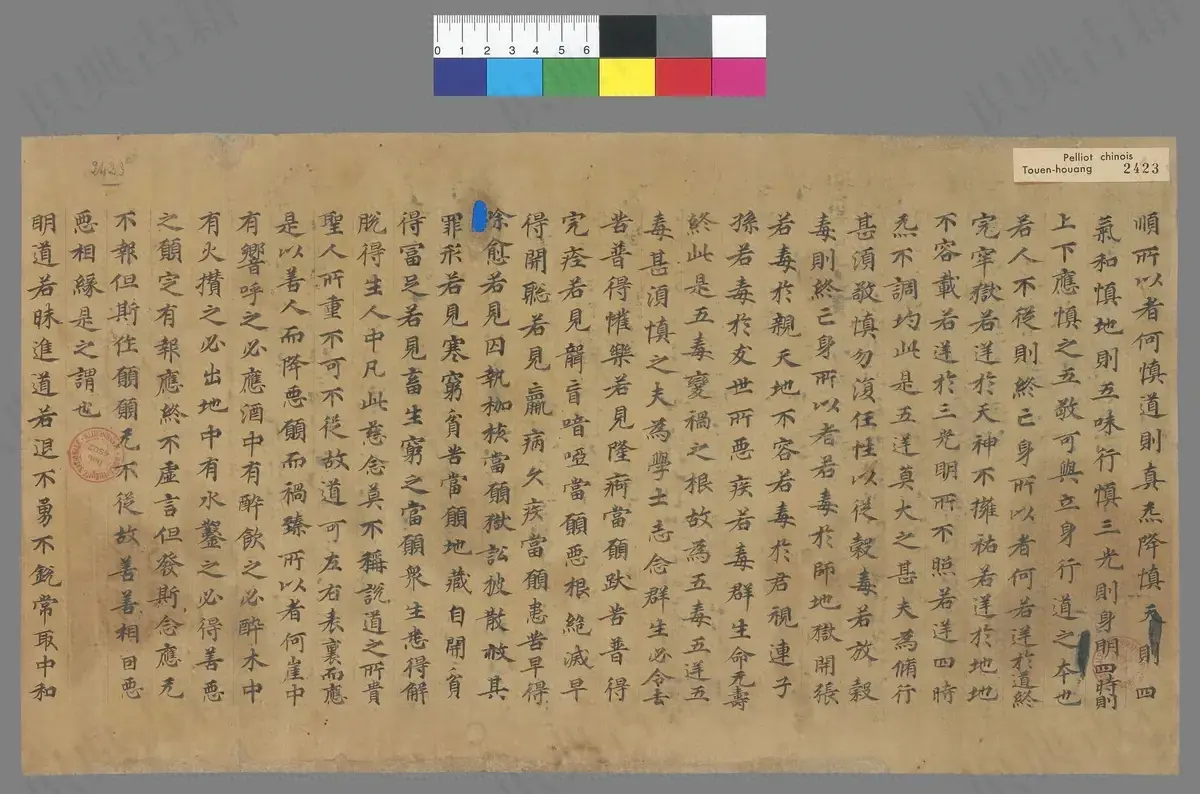 Pelliot chinois
Touen-houang 2423
2423
0 1 2 3 4 5 6
順所以者何慎道則真炁降慎天則四
氣和慎地則五味行慎三光則身明四時則
上下應慎之五敬可與立身行道之本也
若人不從則終己身所以者何若逆於道終
完牢獄若逆於天神不擁祐若逆於地地
不容載若逆於三光明所不照若逆四時
炁不調均此是五逆莫大之甚夫為脩行
甚湏敬慎勿復任性以從穀毒若放穀
毒則終己身所以者若毒於師地獄開張
若毒於親天地不容若毒於君視連子
孫若毒於友世所惡疾若毒群生命无壽
終此是五毒變禍之根故為五毒五逆五
毒甚湏慎之夫為學士志念群生必令去
苦普得懽樂若見隆痾當願趺苦普得
完痊若見聾盲喑啞當願惡根絶滅早
得開聡若見羸病久疾當願患苦早得
除愈若見囚執枷當願獄訟披散赦其
罪形若見寒窮貧苦當願地藏自開貧
得冨足若見畜生窮之當願衆生悉得解
脫得生人中凡此慈念莫不稱說道之所貴
聖人所重不可不從故道可左右表裏而應
是以善人而降惡願而禍臻所以者何崖中
有響呼之必應酒中有醉飲之必醉木中
有火攢之必出地中有水鑿之必得善惡
之願定有報應終不虛言但發斯念應无
不報但斯任願願无不從故善善相因惡
惡相緣是之謂也
明道若昧進道若退不勇不銳常取中和